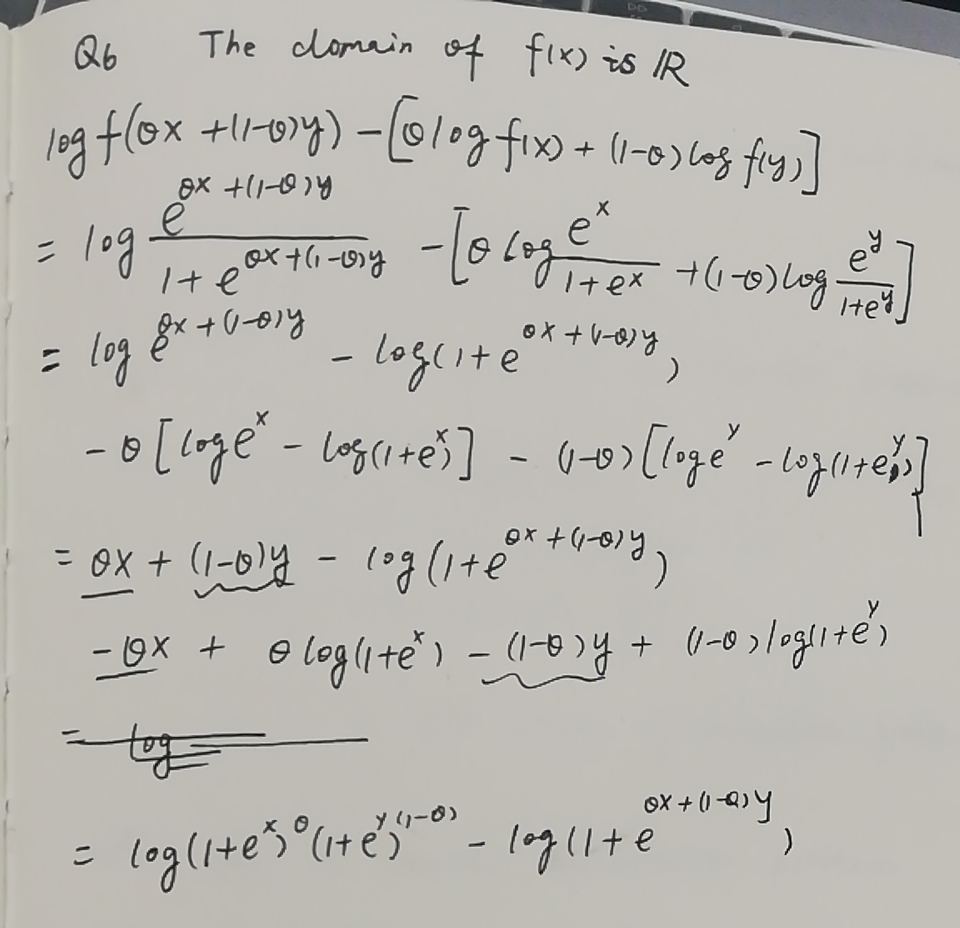 Q6 The domain of f(x) is ℝ
log f(θx + (1-θ)y) - [θ log f(x) + (1-θ) log f(y)]
= log e^{θx + (1-θ)y} / (1 + e^{θx + (1-θ)y}) - [θ log e^x / (1 + e^x) + (1-θ) log e^y / (1 + e^y)]
= log e^{θx + (1-θ)y} - log(1 + e^{θx + (1-θ)y})
- θ [log e^x - log(1 + e^x)] - (1-θ) [log e^y - log(1 + e^y)]
= θx + (1-θ)y - log(1 + e^{θx + (1-θ)y})
- θx + θ log(1 + e^x) - (1-θ)y + (1-θ) log(1 + e^y)
= log
= log(1 + e^x)^θ (1 + e^y)^{(1-θ)} - log(1 + e^{θx + (1-θ)y})